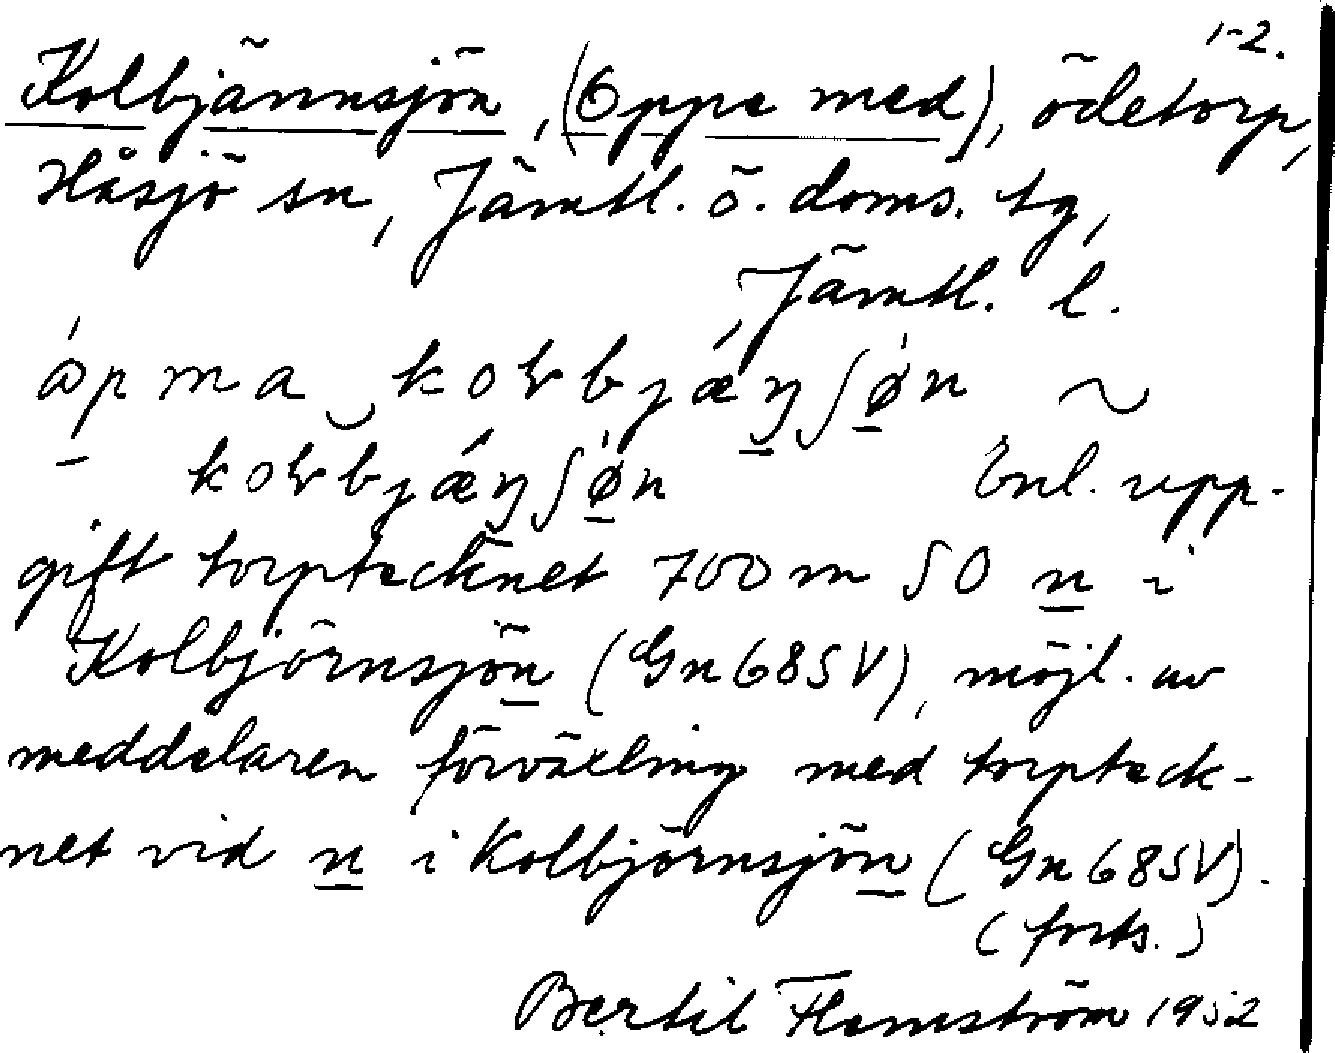 1-2.
Kolbjännsjön, (Oppe med), ödetorp,
Håsjö sn, Jämtl. ö. doms. tg,
Jämtl. l.
kold
Enl. upp-
gift torptecknet 700 m SO n i
Kolbjörnsjön (Gn 68 SV), möjl. av
meddelaren förväxling med torpteck-
net vid n i Kolbjörnsjön (Gn 68 SV).
(forts.)
Bertil Flemström 1952